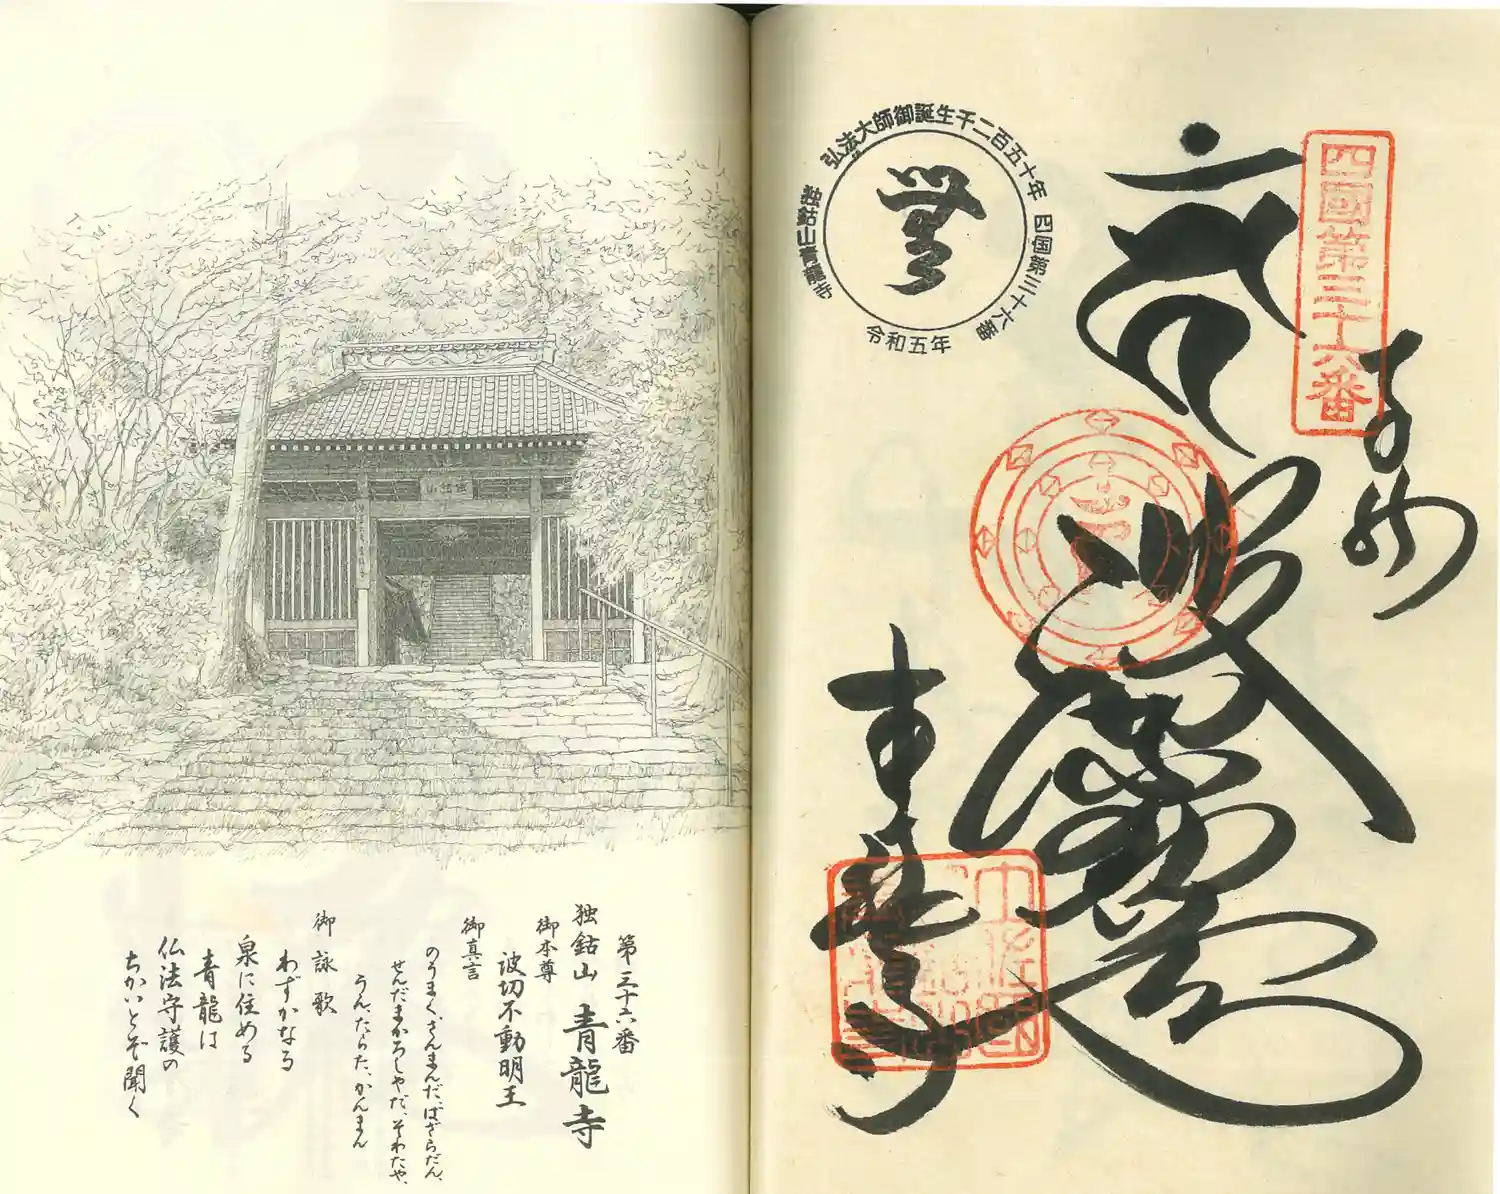 第三十六番
独鈷山 青龍寺
御本尊
波切不動明王
御真言
のうまく、さんまんだ、ばざらだん、
せんだまかろしやだ、そわたや、
うん、たらた、かんまん
御詠歌
わずかなる
泉に住める
青龍は
仏法守護の
ちかいとぞ聞く
弘法大師御誕生千二百五十年
四国第三十六番
独鈷山青龍寺
令和五年
四國第三十六番
青龍寺